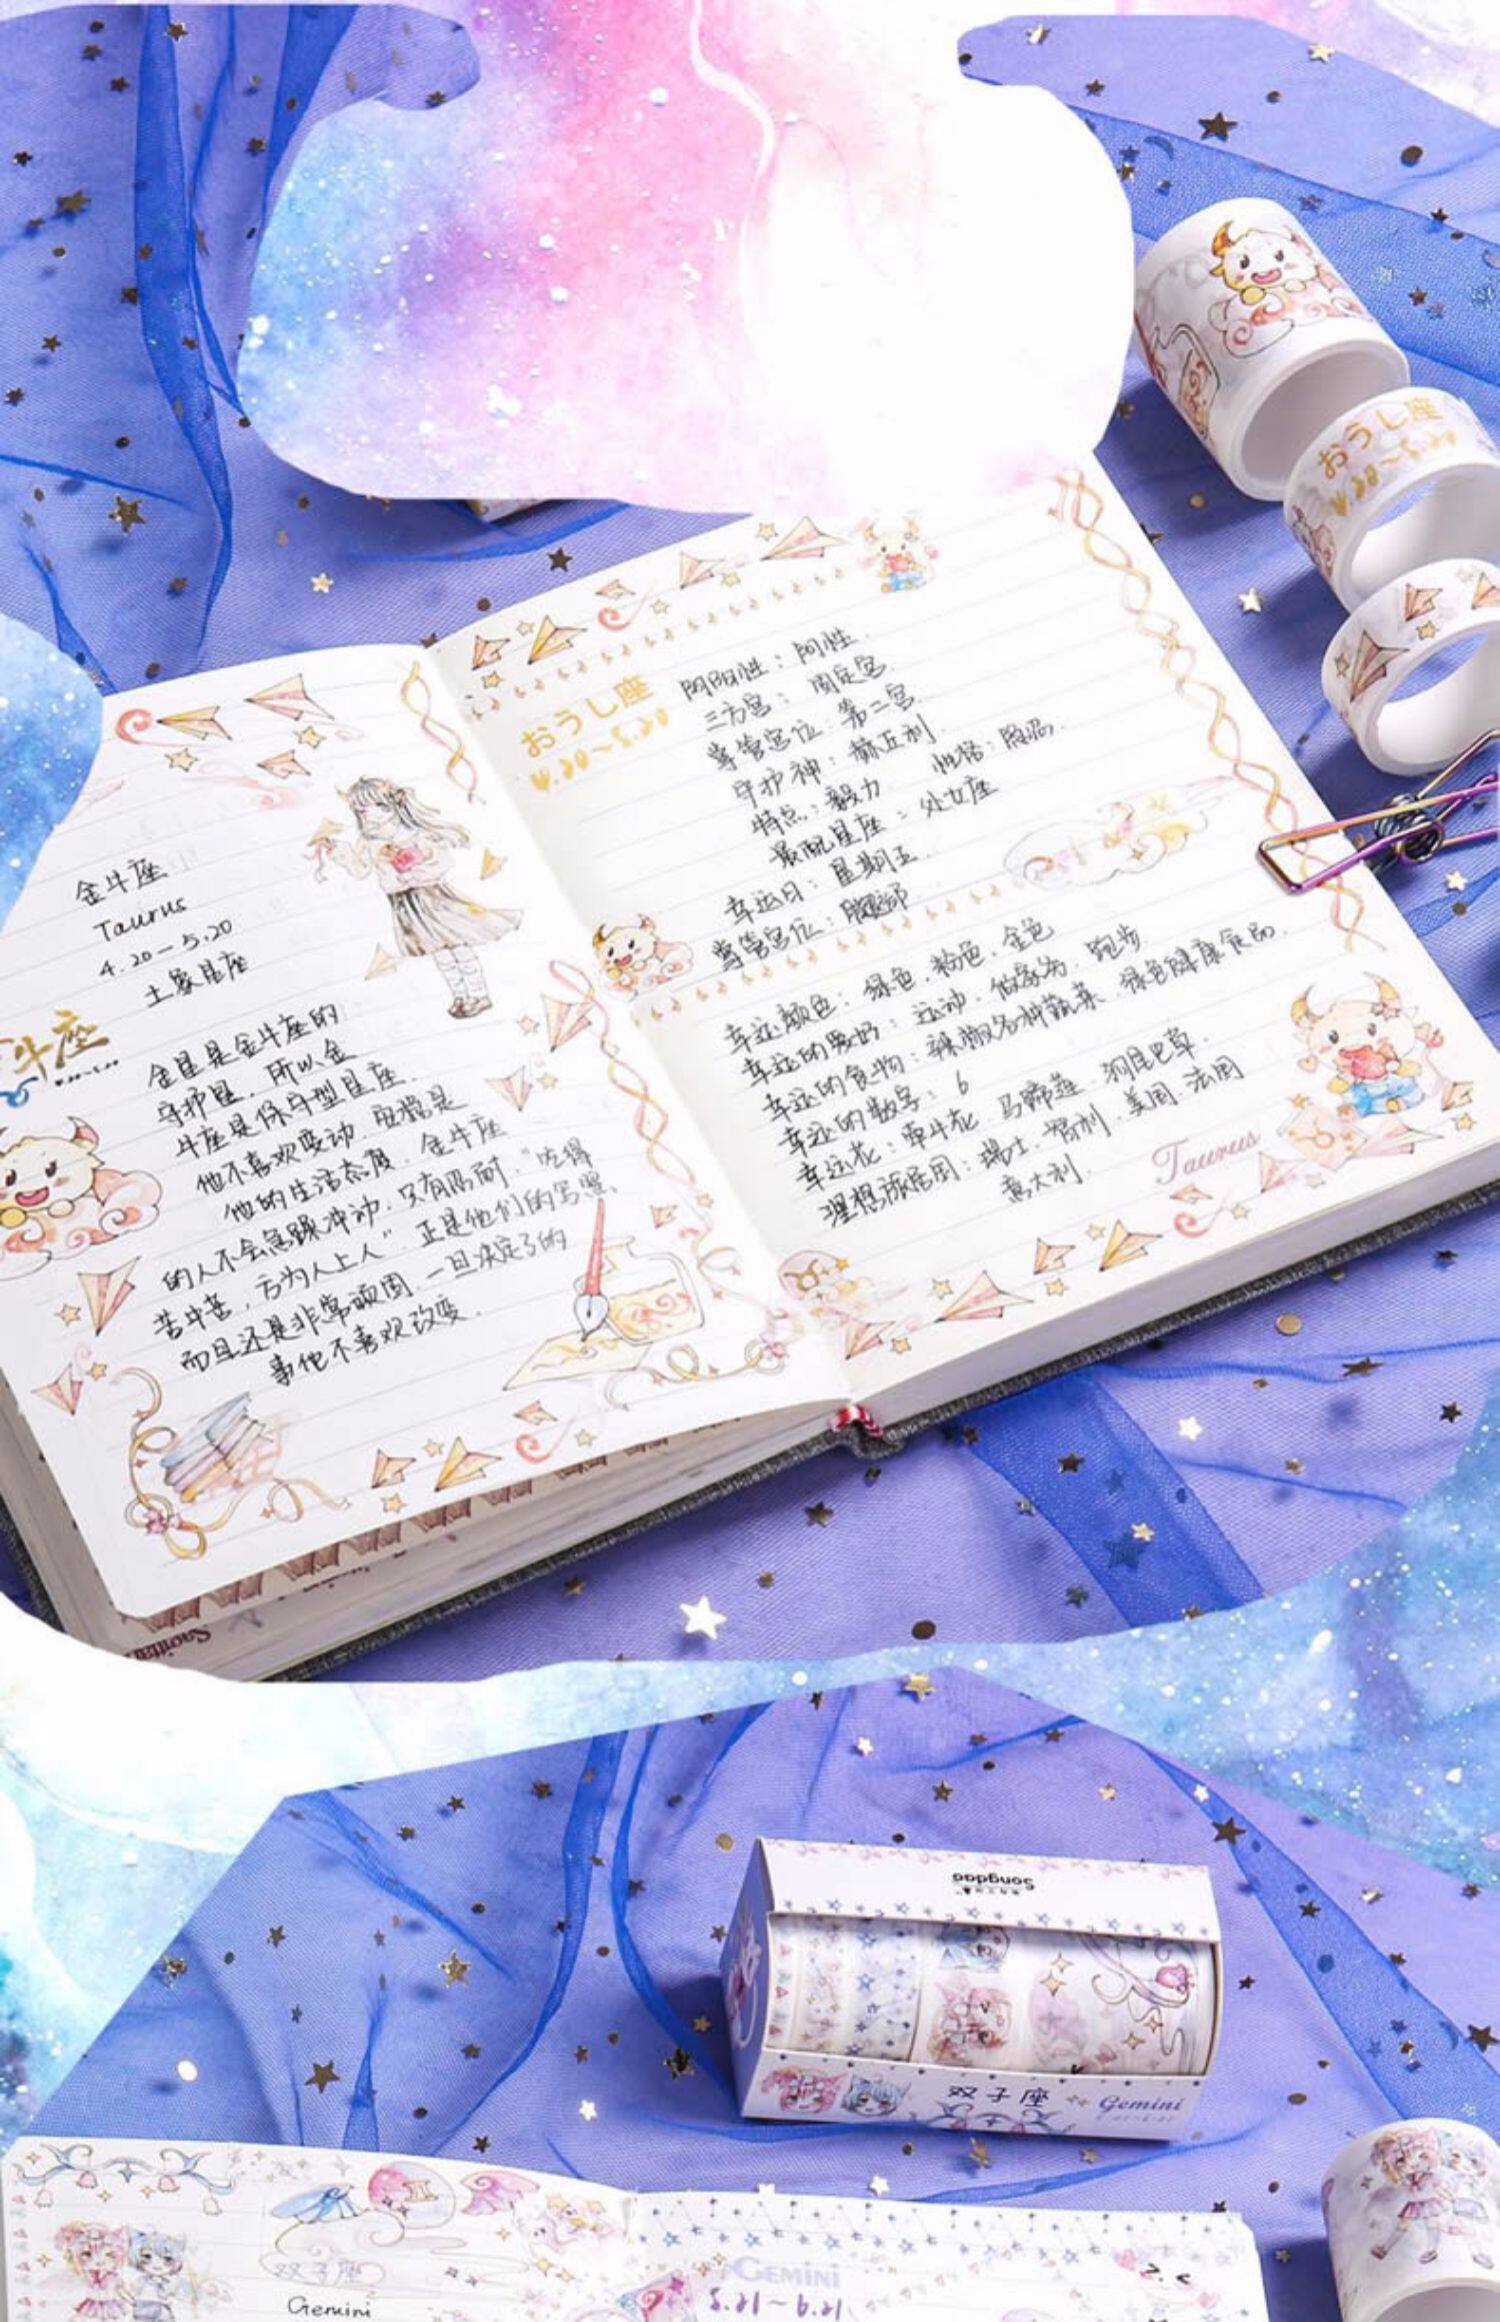 おうし座
4.20~5.20
金牛座
Taurus
4.20-5.20
土象星座
牛座
金星是金牛座的
守护星,所以金
牛座是保守型星座.
他不喜欢变动,安稳是
他的生活态度.金牛座
的人不会急躁冲动,只有隐耐."吃得
苦中苦,方为人上人".正是他们的写照,
而且还是非常顽固.一旦决定了的
事他不喜欢改变.
おうし座
4.20~5.20
阴阳性:阴性.
三方宫:固定宫.
掌管宫位:第二宫.
守护神:赫五利.
特点:毅力 性格:
最配星座:处女座
幸运日:星期五.
掌管宫位:
幸运颜色:绿色.粉色.金色
幸运的爱好:运动.做家务.跑步
幸运的食物:辣椒各种蔬菜.绿色健康食品.
幸运的数字:6
幸运花:牵牛花 马蹄莲.狗尾巴草.
理想旅居国:瑞士.智利.美国.法国
意大利.
Taurus
Songdao
双子座
Gemini
双子座
Gemini
GEMINI
5.21~6.21